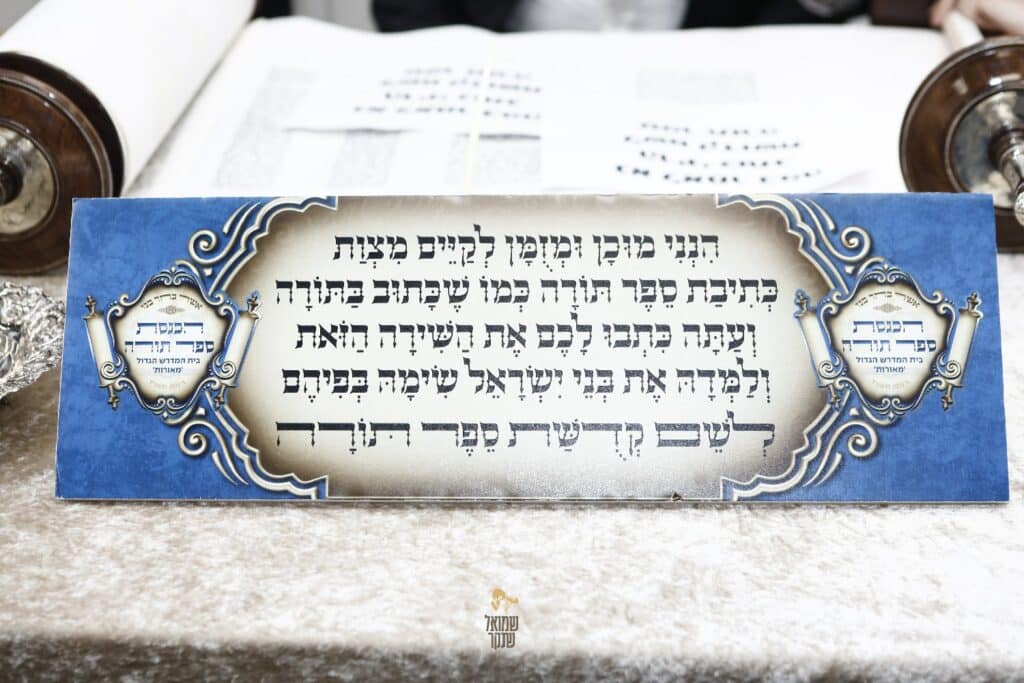 הִנְנִי מוּכָן וּמְזֻמָּן לְקַיֵּים מִצְוַת
כְּתִיבַת סֵפֶר תּוֹרָה כְּמוֹ שֶׁכָּתוּב בַּתּוֹרָה
וְעַתָּה כִּתְבוּ לָכֶם אֶת הַשִּׁירָה הַזֹּאת
וְלַמְּדָהּ אֶת בְּנֵי יִשְׂרָאֵל שִׂימָהּ בְּפִיהֶם
לְשֵׁם קְדֻשַּׁת סֵפֶר תּוֹרָה
הכנסת
ספר תורה
בית המדרש הגדול
'מאורות'
הכנסת
ספר תורה
בית המדרש הגדול
'מאורות'
שמואל
שנקר